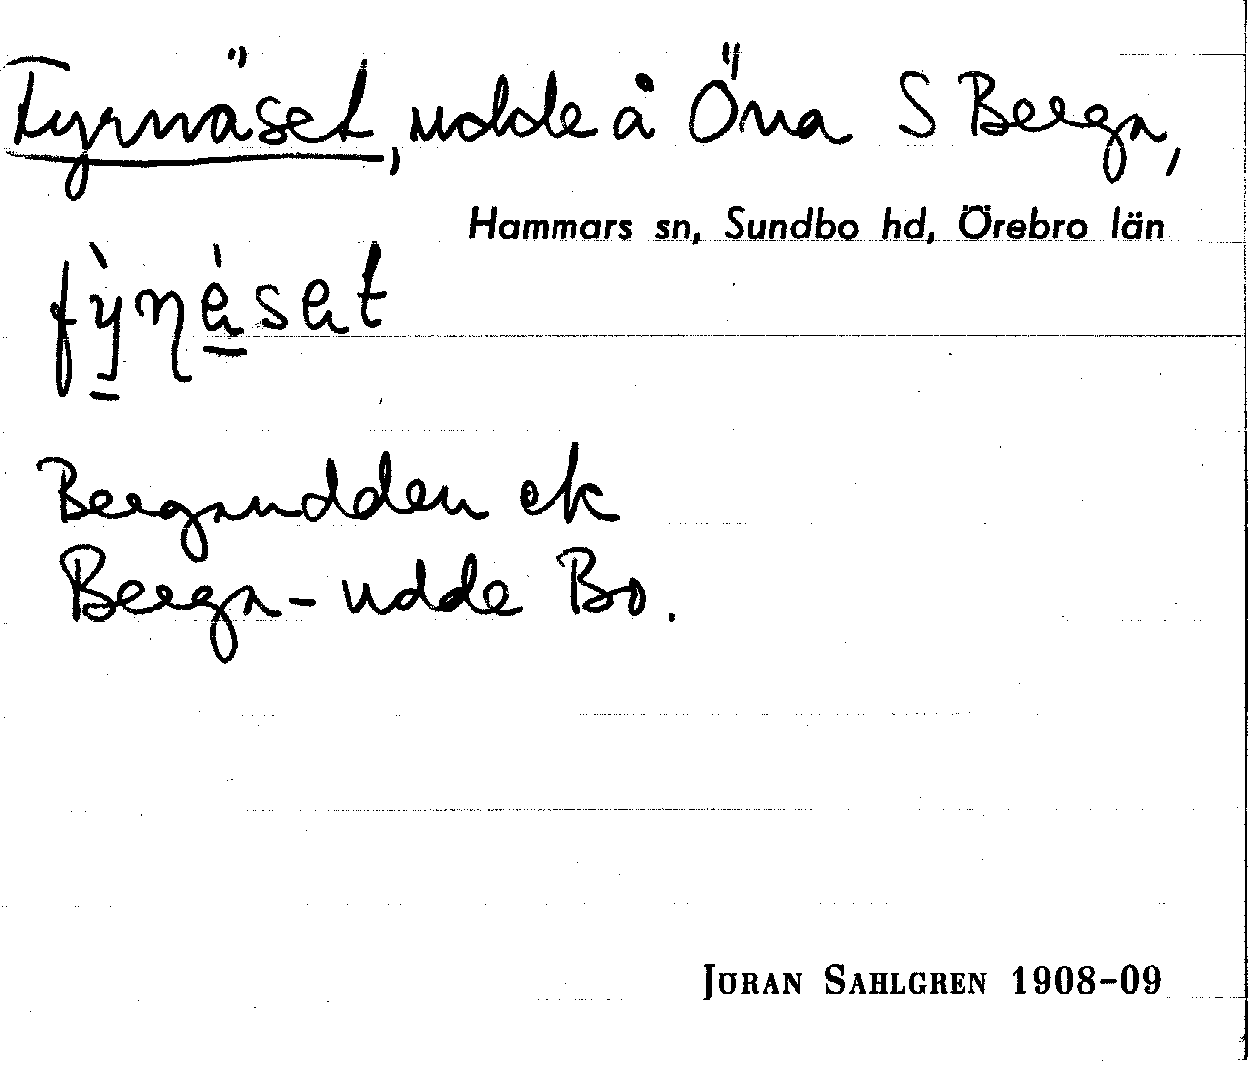 Fyrnäset, udde å Öna S Berga,
Hammars sn, Sundbo hd, Örebro län
Bergaudden ek
Berga-udde Bo.
JÖRAN SAHLGREN 1908-09